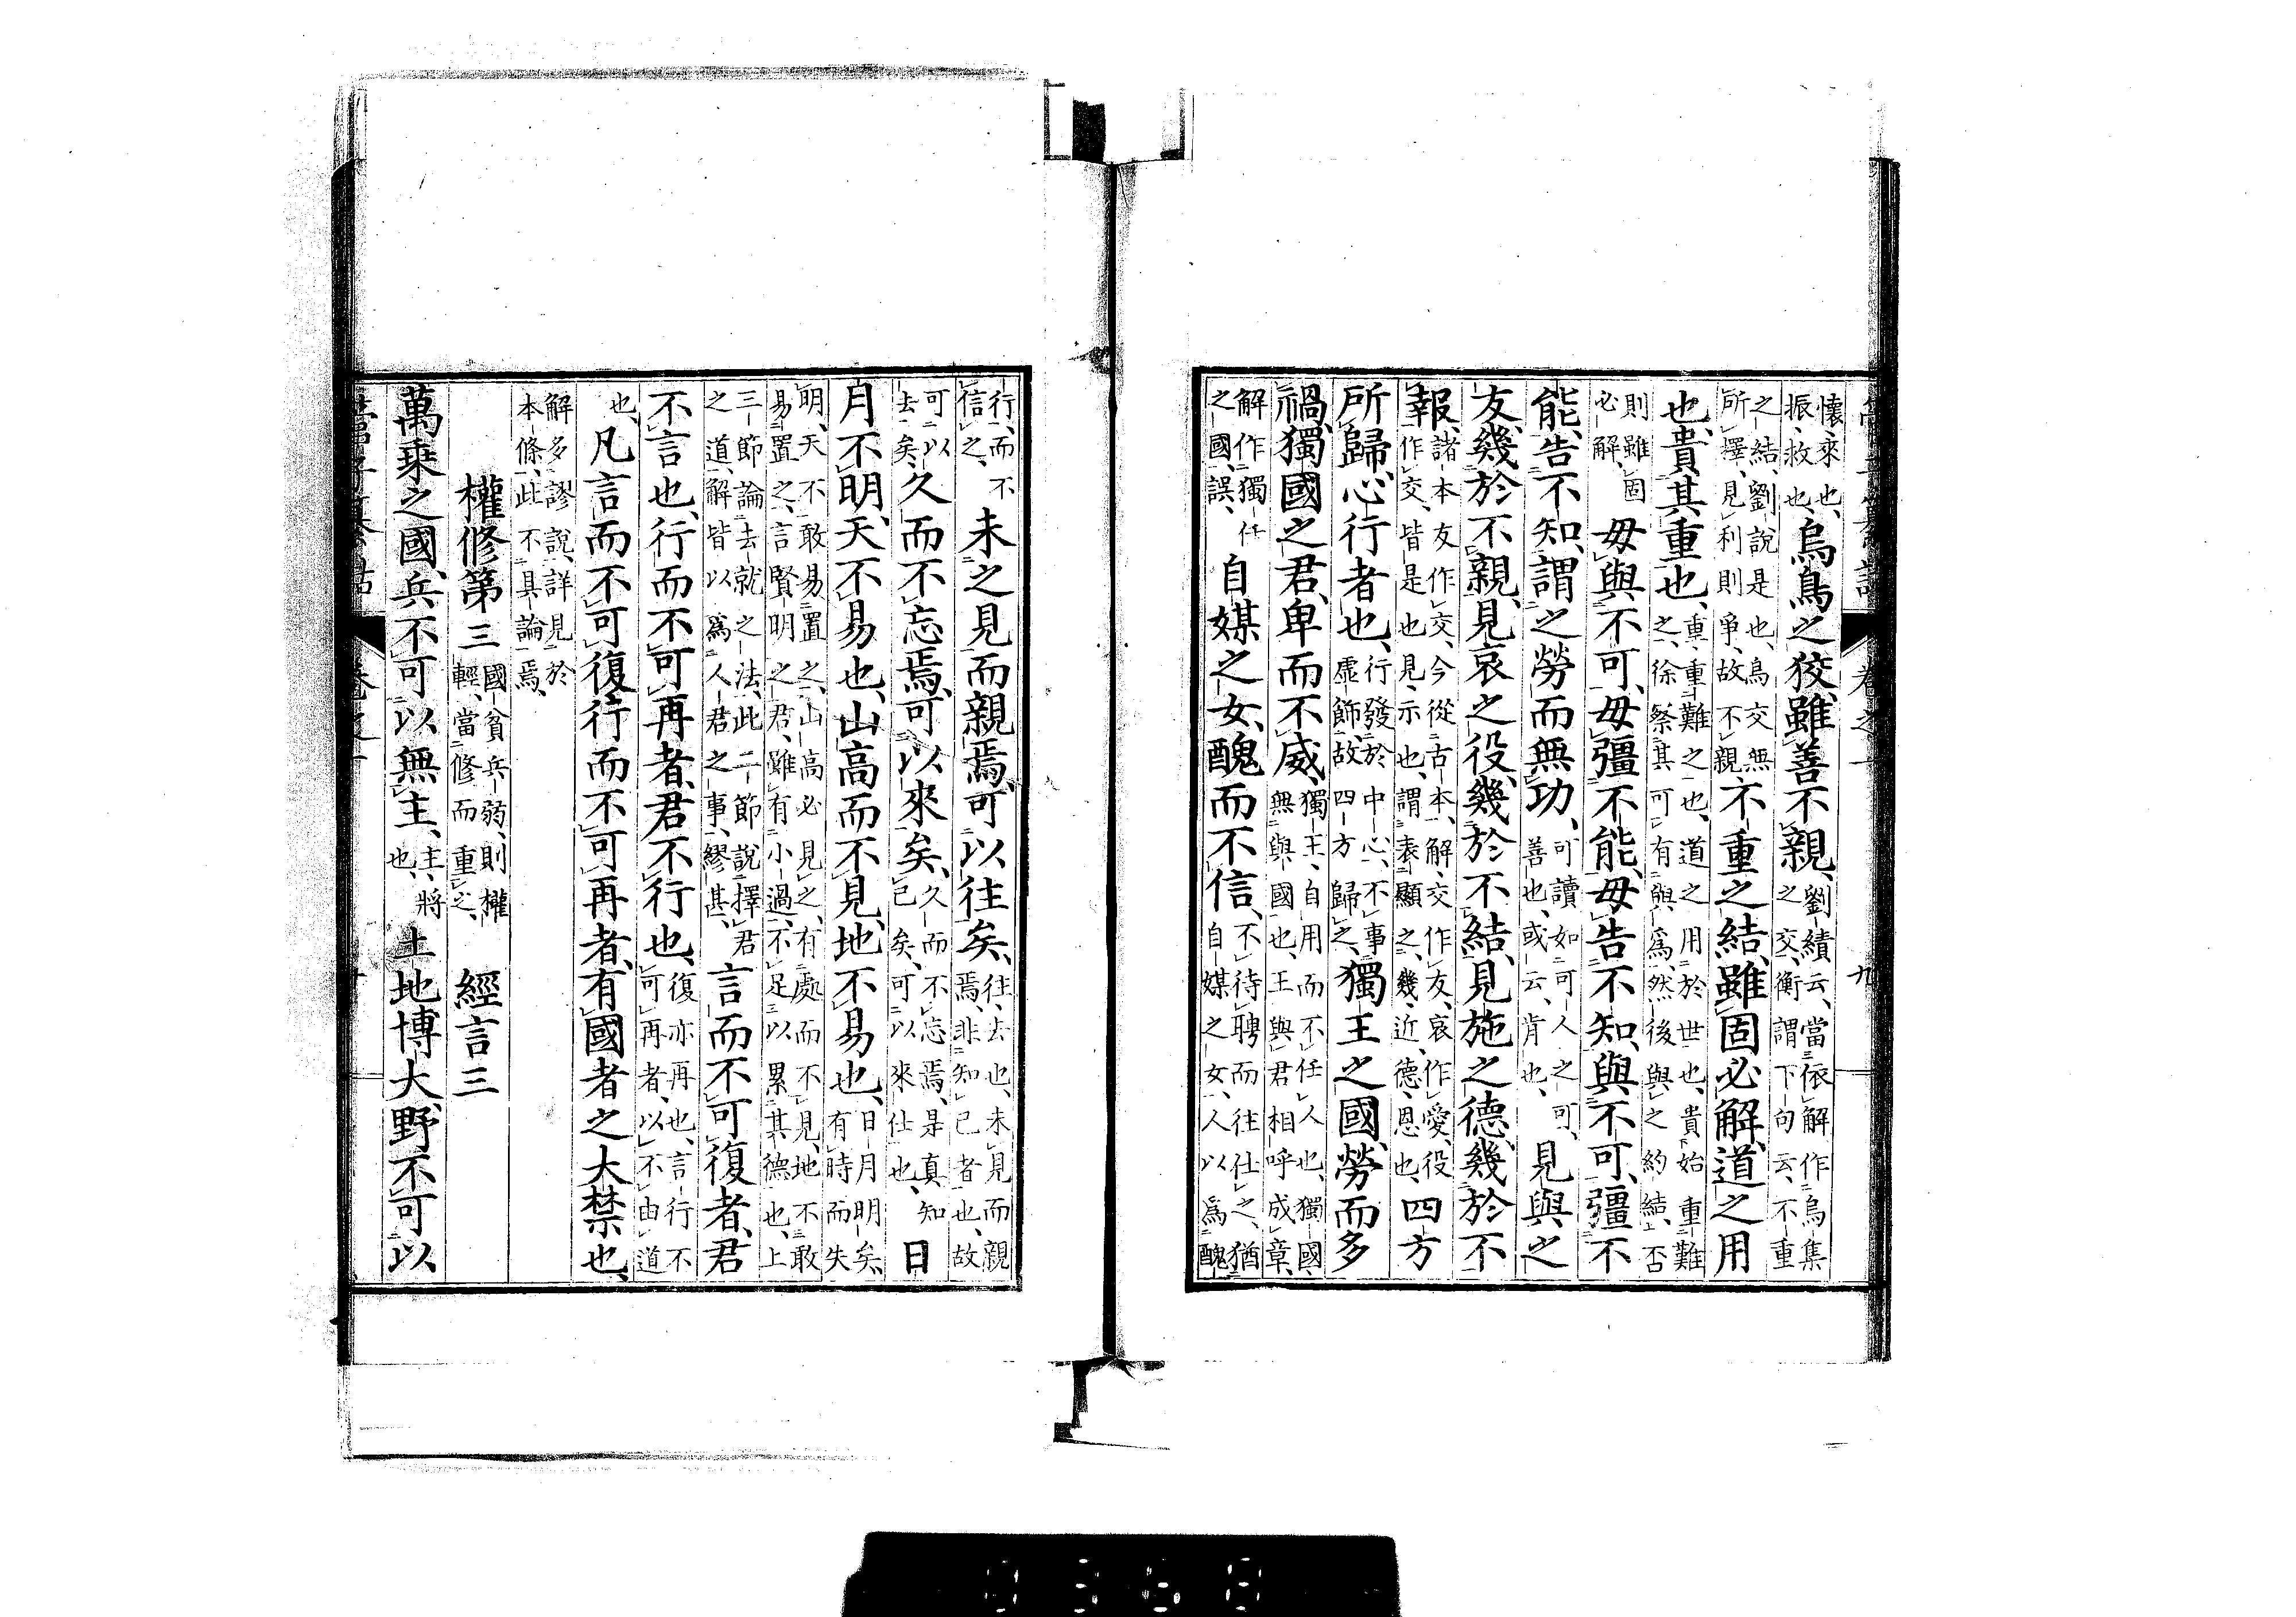 懷來也、振救也、烏鳥之狡、雖善不親、劉績云、當依解作烏集之交、衡謂下句云、不重
之結、劉說是也、烏交無所擇、見利則爭、故不親不重之結、雖固必解、道之用
也、貴其重也、重、重難之也、道之用於世也、貴始重難之、徐察其可有與爲、然後與之約結、否
則雖固必解、毋與不可、毋彊不能、毋告不知、與不可、彊不
能、告不知、謂之勞而無功、可讀如可人之可、善也、或云、肯也、見與之
友、幾於不親、見哀之役、幾於不結、見施之德、幾於不
報、諸本友作交、今從古本、解、交作友、哀作愛、役作交、皆是也、見、示也、謂表顯之、幾、近、德、恩也、四方
所歸、心行者也、行發於中心、不事虛飾、故四方歸之、獨王之國、勞而多
禍、獨國之君、卑而不威、獨王、自用而不任人也、獨國、無與國也、王與君相呼成章、
解作獨任之國、誤、自媒之女、醜而不信、不待聘而往仕之、猶自媒之女、人以爲醜
卷之一 九
行、而不信之、未之見而親焉、可以往矣、往、去也、未見而親焉、非知己者也、故
可以去矣、久而不忘焉、可以來矣、久而不忘焉、是真知己矣、可以來仕也、日
月不明、天不易也、山高而不見、地不易也、日月明矣、有時而失
明、天不敢易置之、山高必見之、有處而不見、地不敢易置之、言賢明之君、雖有小過、不足以累其德也、上
三節論去就之法、此二節說擇君之道、解皆以爲人君之事、繆甚、言而不可復者、君
不言也、行而不可再者、君不行也、復亦再也、言行不可再者、以不由道
也、凡言而不可復、行而不可再者、有國者之大禁也、
解多謬說、詳見於本條、此不具論焉、
權修第三 國貧兵弱、則權輕、當修而重之、 經言三
萬乘之國、兵不可以無主、主、將也、土地博大、野不可以